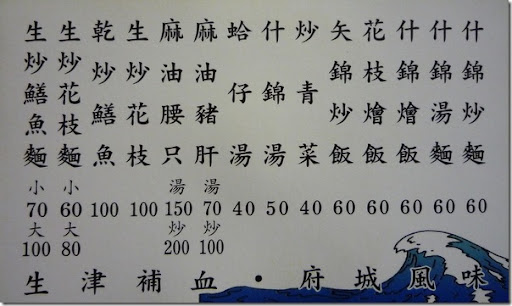 生炒鱔魚麵 小70 大100
生炒花枝麵 小60 大80
乾炒鱔魚 100
生炒花枝 100
麻油腰只 湯150 炒200
麻油豬肝 湯70 炒100
蛤仔湯 40
什錦湯 50
炒青菜 40
矢錦炒飯 60
花枝燴飯 60
什錦燴飯 60
什錦湯麵 60
什錦炒麵 60
生津補血・府城風味